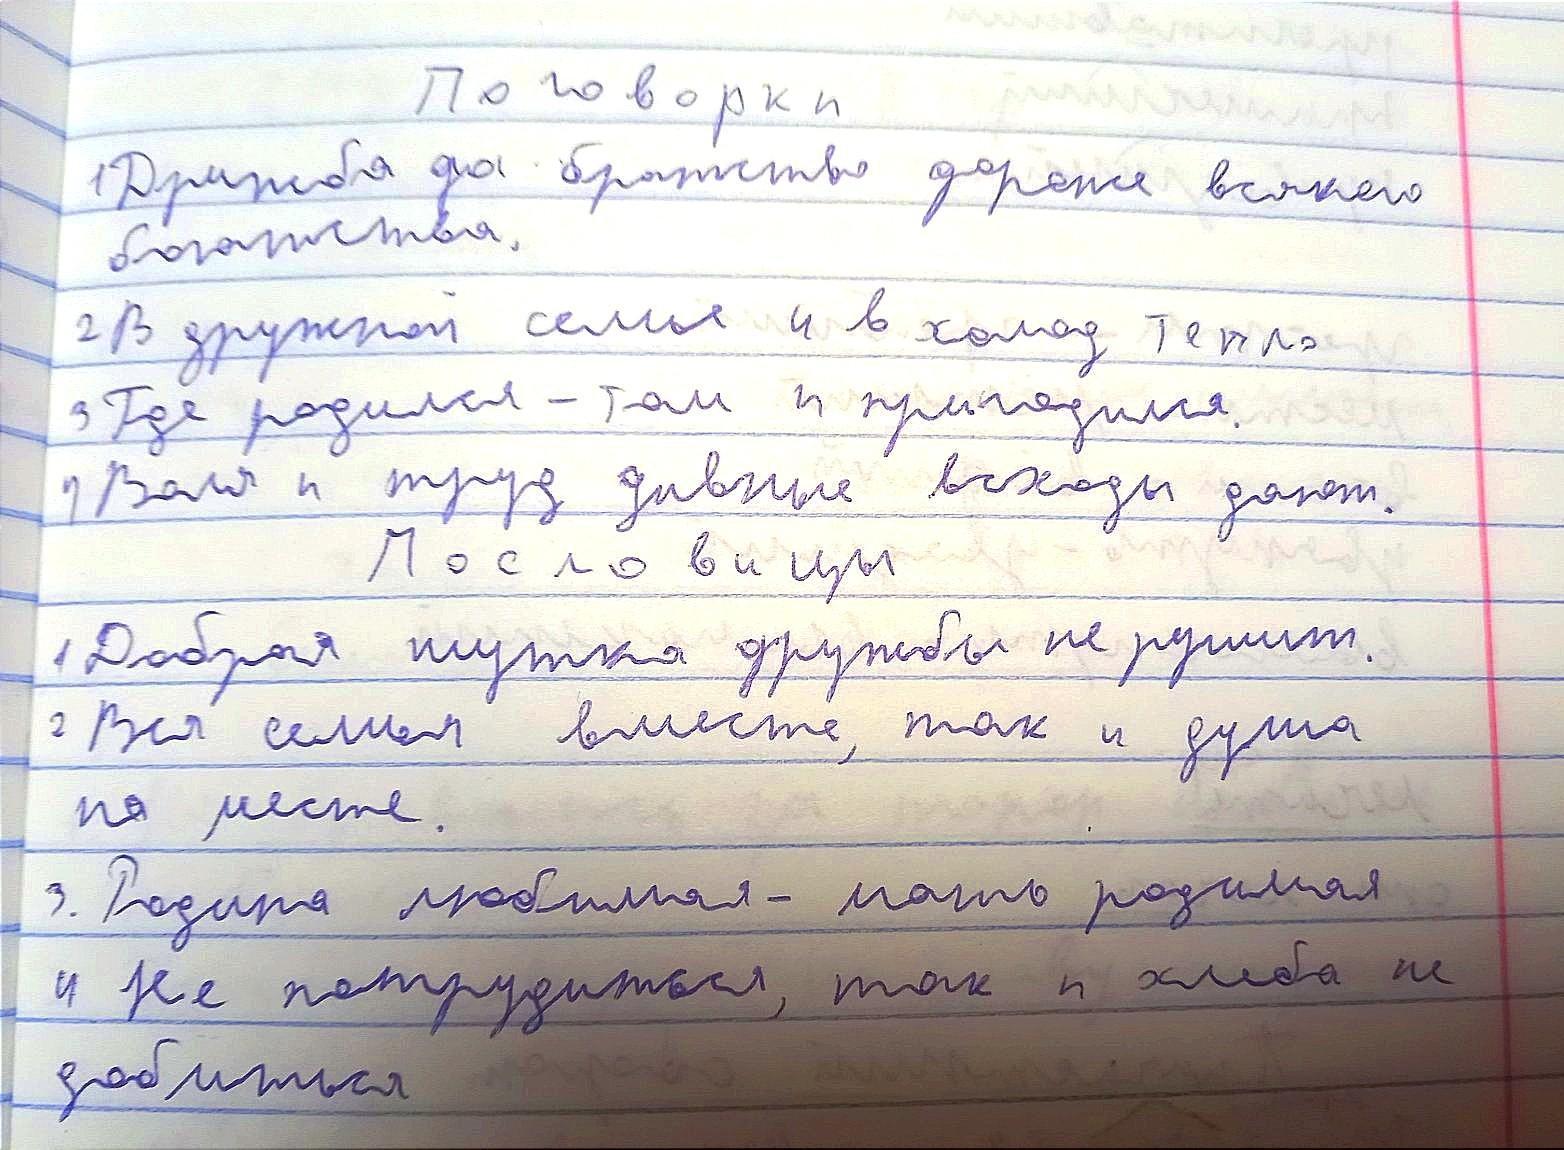 Поговорки
1 Дружба да братство дороже всякого
богатства.
2 В дружной семье и в холод тепло
3 Где родился - там и пригодился.
4 Воля и труд дивные всходы дают.
Пословицы
1 Добрая шутка дружбы не рушит.
2 Вся семья вместе, так и душа
на месте.
3. Родина любимая - мать родимая
4 Не потрудиться, так и хлеба не
добиться